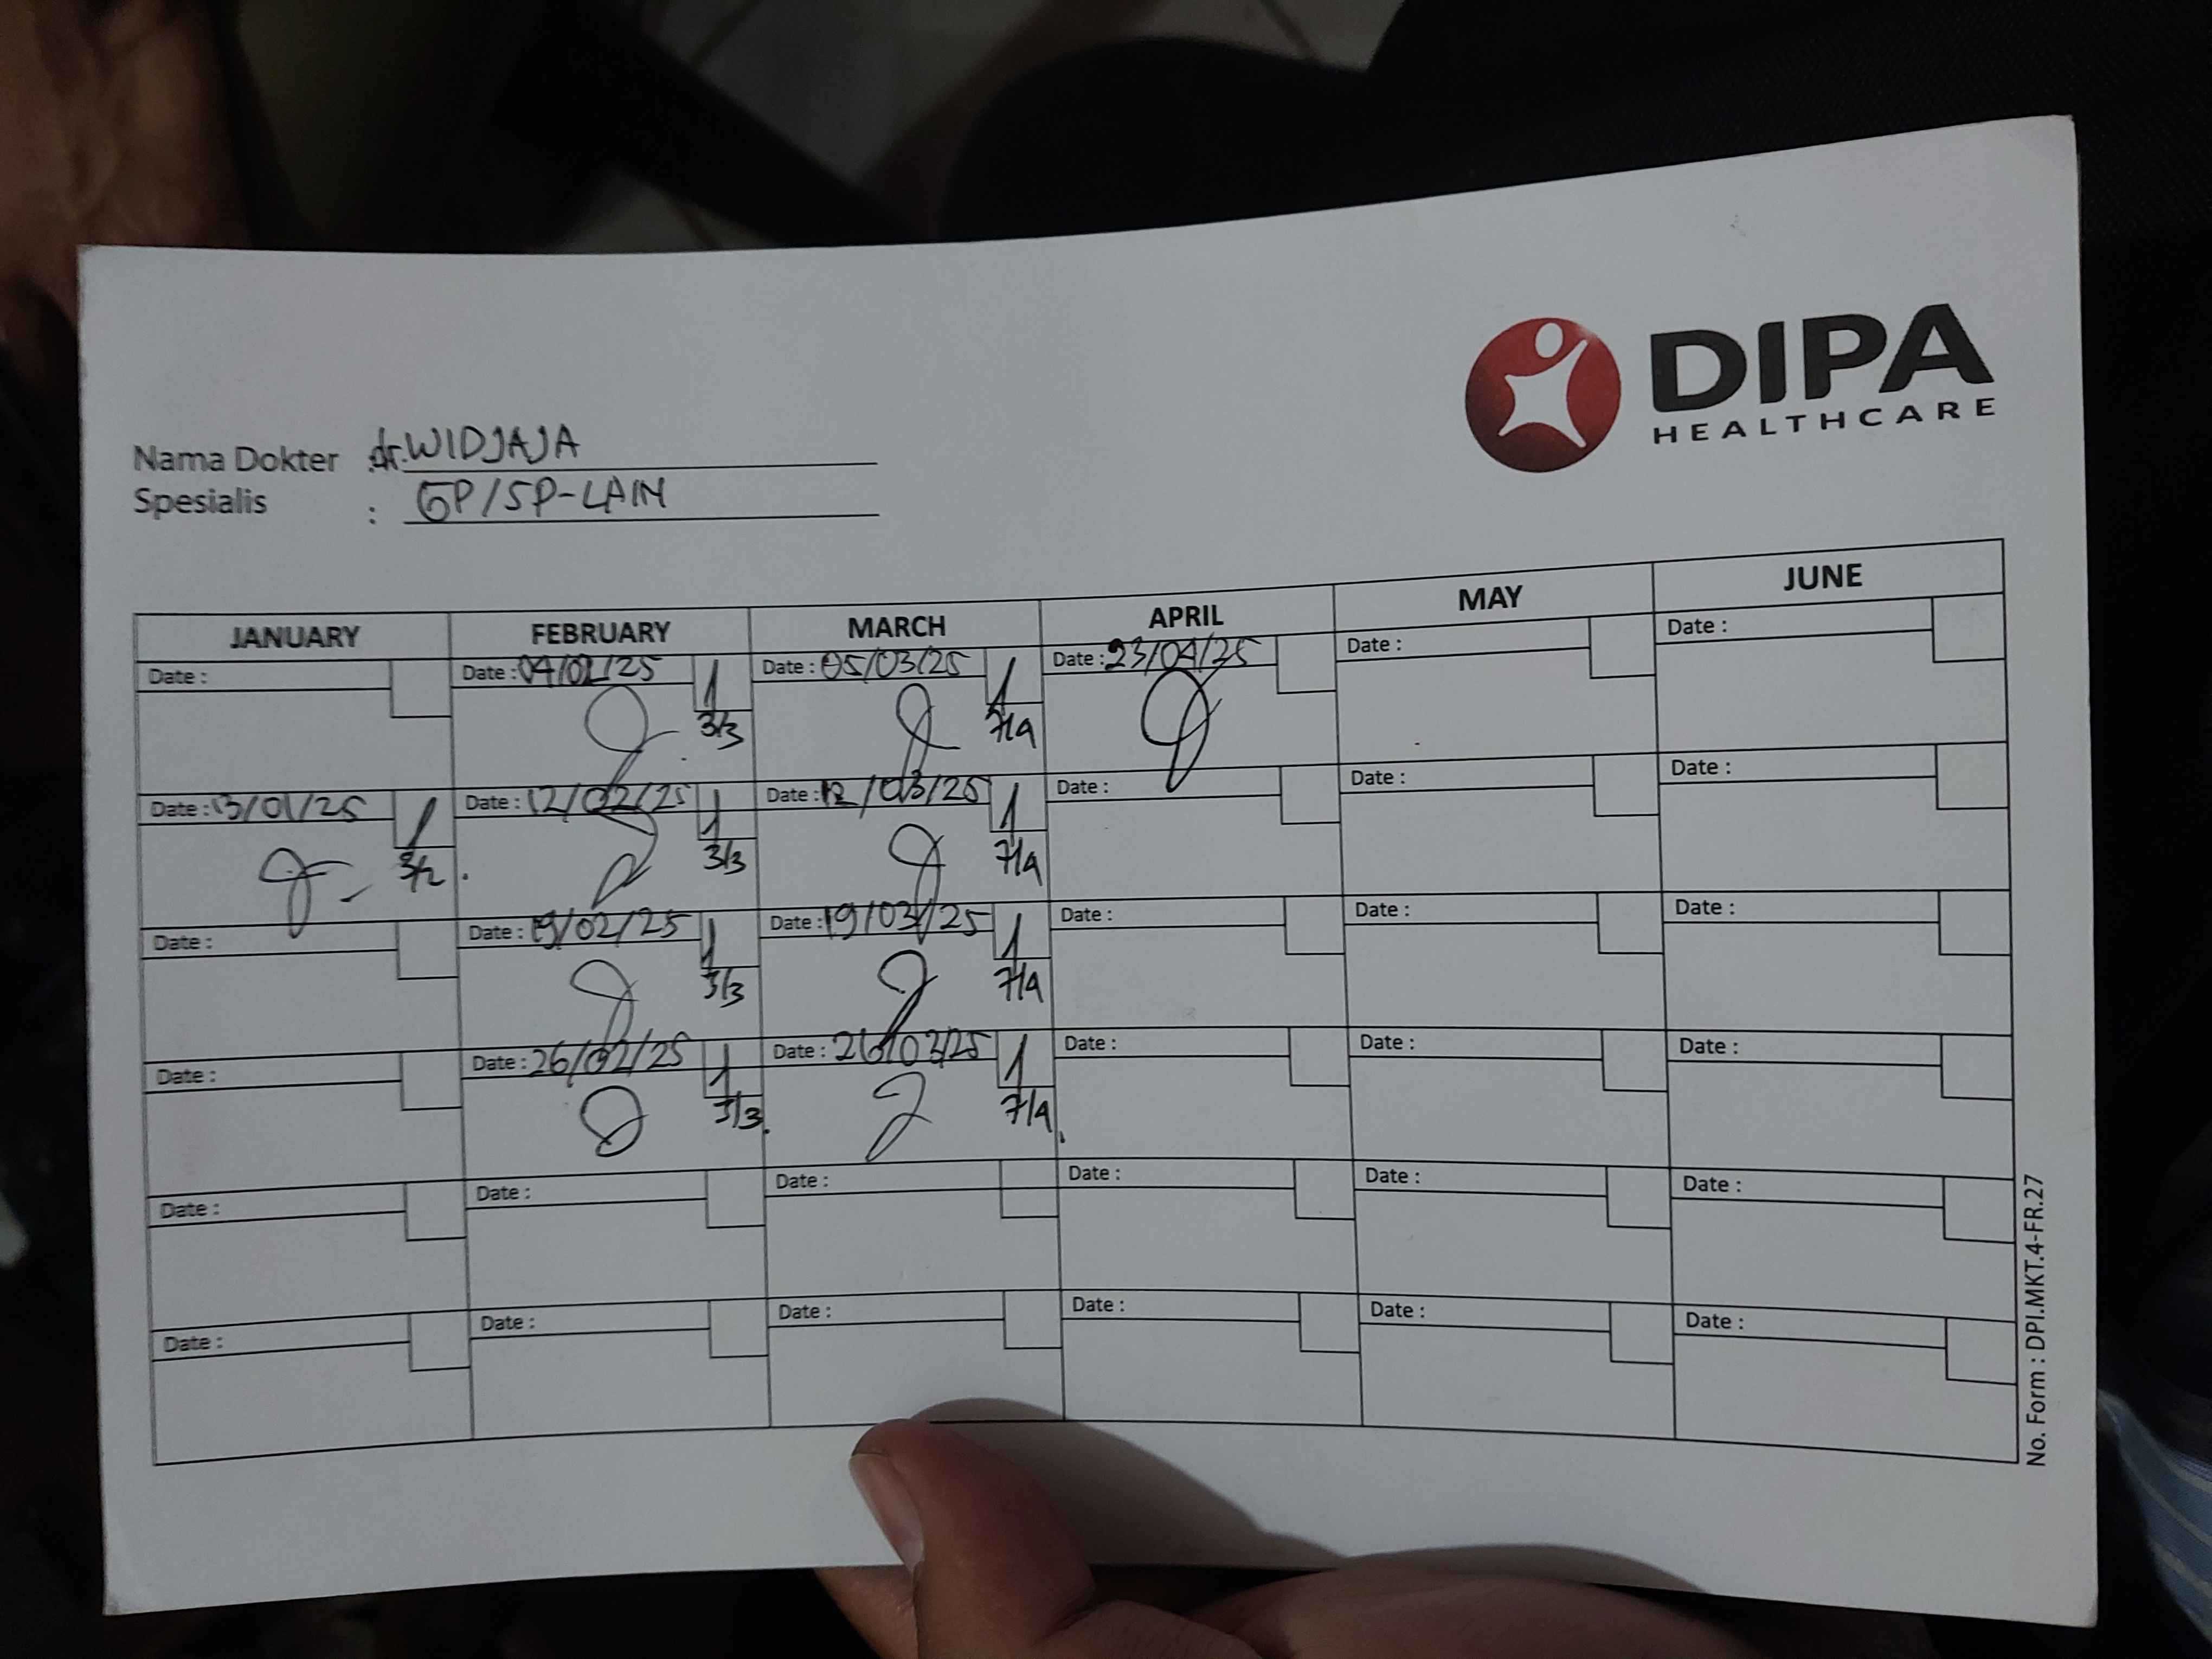 DIPA
HEALTHCARE
Nama Dokter : dr. WIDJAJA
Spesialis : GP/SP-LAIN
JANUARY FEBRUARY MARCH APRIL MAY JUNE
Date : Date : 04/02/25 Date : 05/03/25 Date : 23/04/25 Date : Date :
3/3 7/4
Date : 13/01/25 Date : 12/02/25 Date : 12/03/25 Date : Date : Date :
3/2 3/3 7/4
Date : Date : 19/02/25 Date : 19/03/25 Date : Date : Date :
3/3 7/4
Date : Date : 26/02/25 Date : 26/03/25 Date : Date : Date :
3/3 7/4
Date : Date : Date : Date : Date : Date :
Date : Date : Date : Date : Date : Date :
No. Form : DPI.MKT.4-FR.27